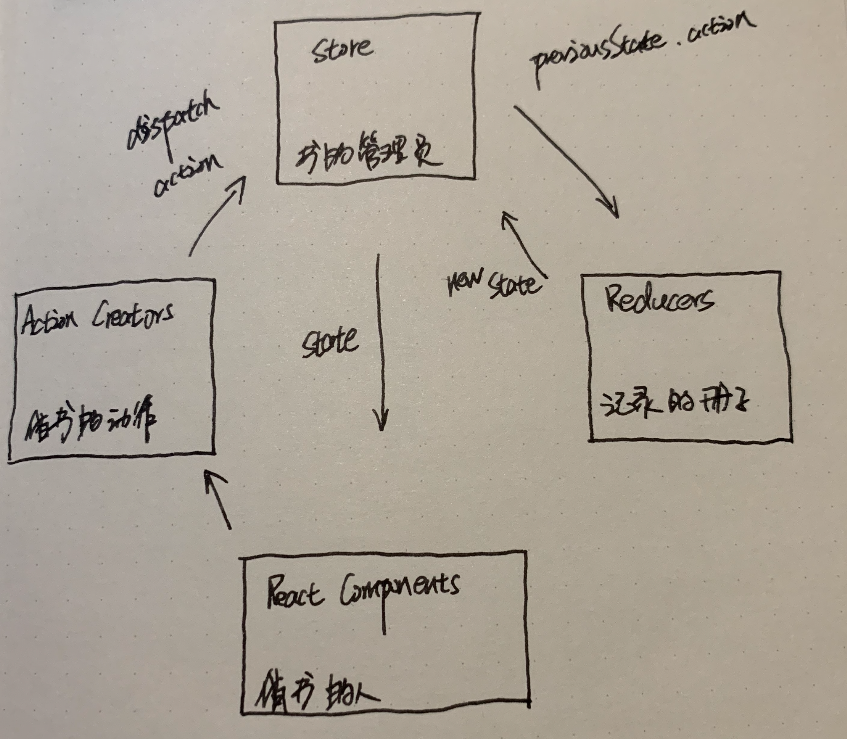 Store
书的管理员
previousState.action
dispatch
action
newState
Action Creators
借书的动作
state
Reducers
记录的册子
React Components
借书的人